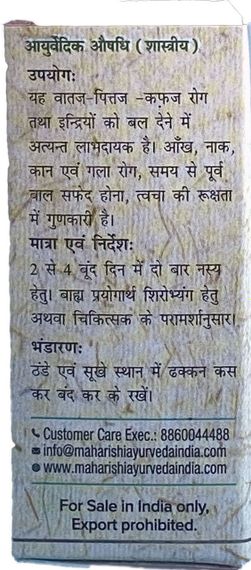 आयुर्वेदिक औषधि ( शास्त्रीय )
उपयोग:
यह वातज-पित्तज -कफज रोग
तथा इन्द्रियों को बल देने में
अत्यन्त लाभदायक है। आँख, नाक,
कान एवं गला रोग, समय से पूर्व
बाल सफेद होना, त्वचा की रूक्षता
में गुणकारी है।
मात्रा एवं निर्देश:
2 से 4 बूंद दिन में दो बार नस्य
हेतु। बाह्य प्रयोगार्थ शिरोभ्यंग हेतु
अथवा चिकित्सक के परामर्शानुसार।
भंडारण:
ठंडे एवं सूखे स्थान में ढक्कन कस
कर बंद कर के रखें।
Customer Care Exec.: 8860044488
info@maharishiayurvedaindia.com
www.maharishiayurvedaindia.com
For Sale in India only,
Export prohibited.